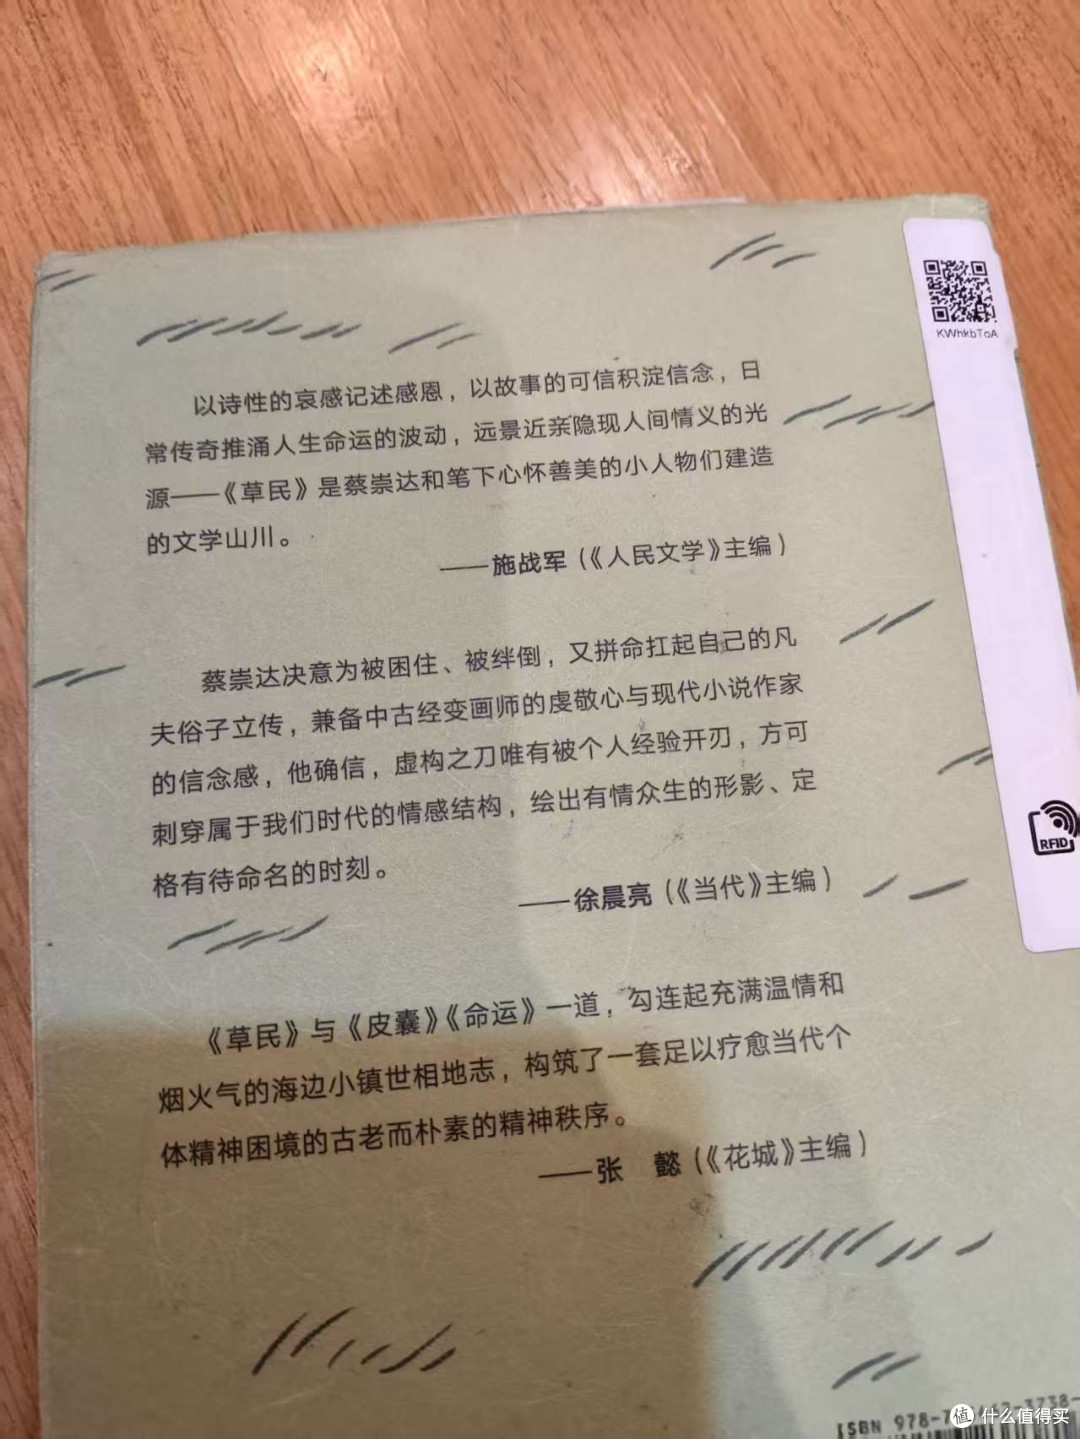 KWhkbToA
以诗性的哀感记述感恩，以故事的可信积淀信念，日
常传奇推涌人生命运的波动，远景近亲隐现人间情义的光
源——《草民》是蔡崇达和笔下心怀善美的小人物们建造
的文学山川。
——施战军（《人民文学》主编）
蔡崇达决意为被困住、被绊倒，又拼命扛起自己的凡
夫俗子立传，兼备中古经变画师的虔敬心与现代小说作家
的信念感，他确信，虚构之刀唯有被个人经验开刃，方可
刺穿属于我们时代的情感结构，绘出有情众生的形影、定
格有待命名的时刻。
——徐晨亮（《当代》主编）
RFID
《草民》与《皮囊》《命运》一道，勾连起充满温情和
烟火气的海边小镇世相地志，构筑了一套足以疗愈当代个
体精神困境的古老而朴素的精神秩序。
——张　懿（《花城》主编）
ISBN 978-7
值 什么值得买